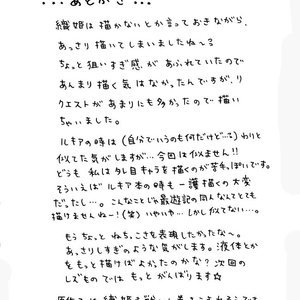 ・・・あとがき・・・
織姫は描かないとか言っておきながら、
あっさり描いてしまいましたね〜?
ちょっと狙いすぎ感があふれていたので
あんまり描く気はなかったんですが、リ
クエストがあまりにも多かったので描い
ちゃいました。
ルキアの時は(自分でいうのも何だけど…?)わりと
似てた気がしますが…今回は似ません!!
どうも私はタレ目キャラを描くのが苦手っぽいです。
そういえばルキア本の時も一護描くの大変
だったし…。こんなことじゃ最遊記の同人なんてとても
描けませんねー!(笑)いやいや…しかし似てない…。
もうちょっとねちっこさを表現したかったな〜。
あっさりしすぎのような気がします。液体とか
をもっと描けばよかったのかな?次回の
レズものではもっとがんばります☆